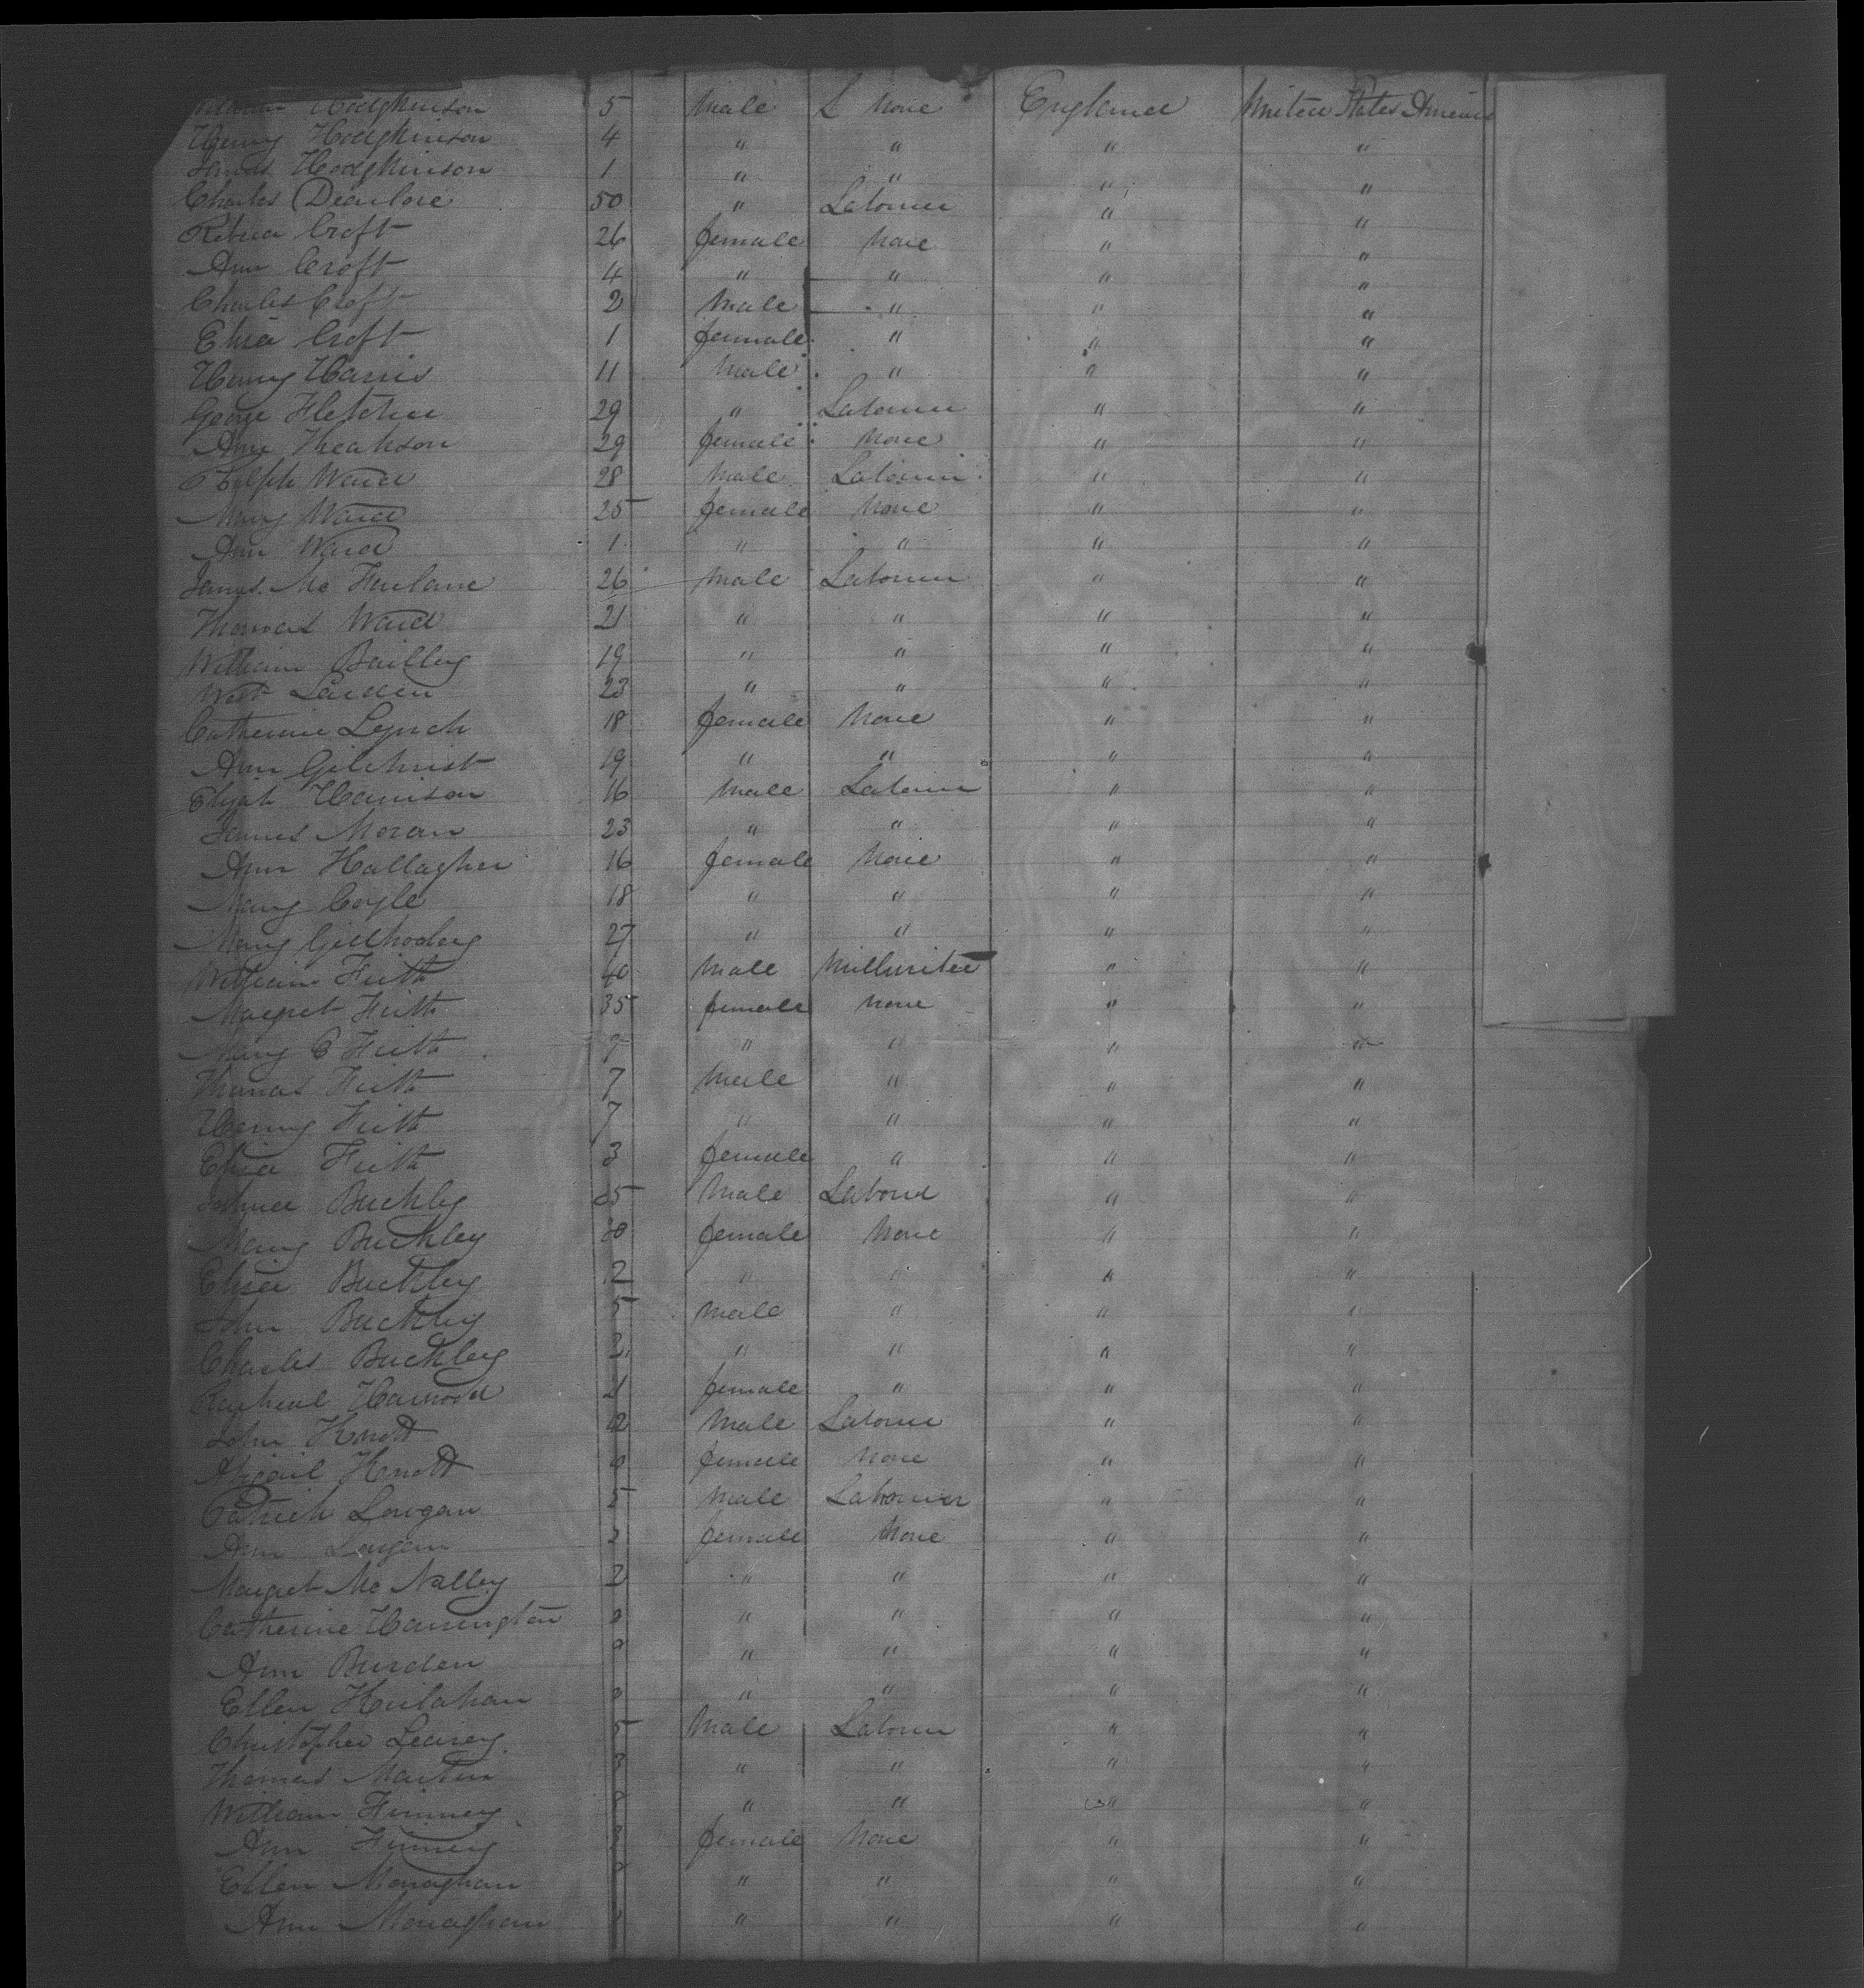 Hodgkinson 5 Male L None England United States America
Henry Hodgkinson 4 " " " "
James Hodgkinson 1 " " " "
Charles 50 " Labourer " "
Croft 26 female None " "
Ann Croft 4 " " " "
Charles Croft 2 Male " " "
Eliza Croft 1 female " " "
Henry Harris 11 Male " " "
George Fletcher 29 " Labourer " "
Ann 29 female None " "
Ralph Ward 28 Male Labourer " "
Mary Ward 25 female None " "
Ann Ward 1 " " " "
James Mc Farlane 26 Male Labourer " "
Thomas Ward 21 " " " "
William Bailley 19 " " " "
23 " " " "
Catherine Lynch 18 female None " "
Ann Gilchrist 19 " " " "
Elijah Harrison 16 Male Labourer " "
James Moran 23 " " " "
Ann Hallagher 16 female None " "
Mary Coyle 18 " " " "
Mary Gillhooley 27 " " " "
William Firth 40 Male " "
Margret Firth 35 female None " "
Mary E Firth " " " "
Thomas Firth 7 Male " " "
Henry Firth 7 " " " "
Eliza Firth 3 female " " "
Buckley 5 Male Labourer " "
Mary Buckley female None " "
Eliza Buckley 2 " " " "
John Buckley 5 Male " " "
Charles Buckley 2 " " " "
female " " "
John Knott Male Labourer " "
Abigail Knott female None " "
Patrick Lowgan 5 Male Labourer " "
Ann Lowgan female None " "
Margret Mc Nalley 2 " " " "
Catherine Harrington " " " "
Ann Burden " " " "
Ellen " " " "
Christopher 5 Male Labourer " "
Thomas Martin " " " "
William Finney " " " "
Ann Finney female None " "
Ellen Monaghan " " " "
Ann Monaghan " " " "